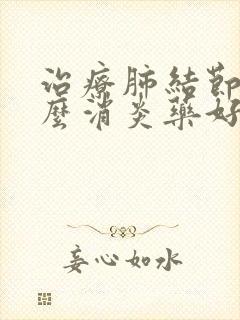 治療肺結節
麼消炎藥好
妾心如水